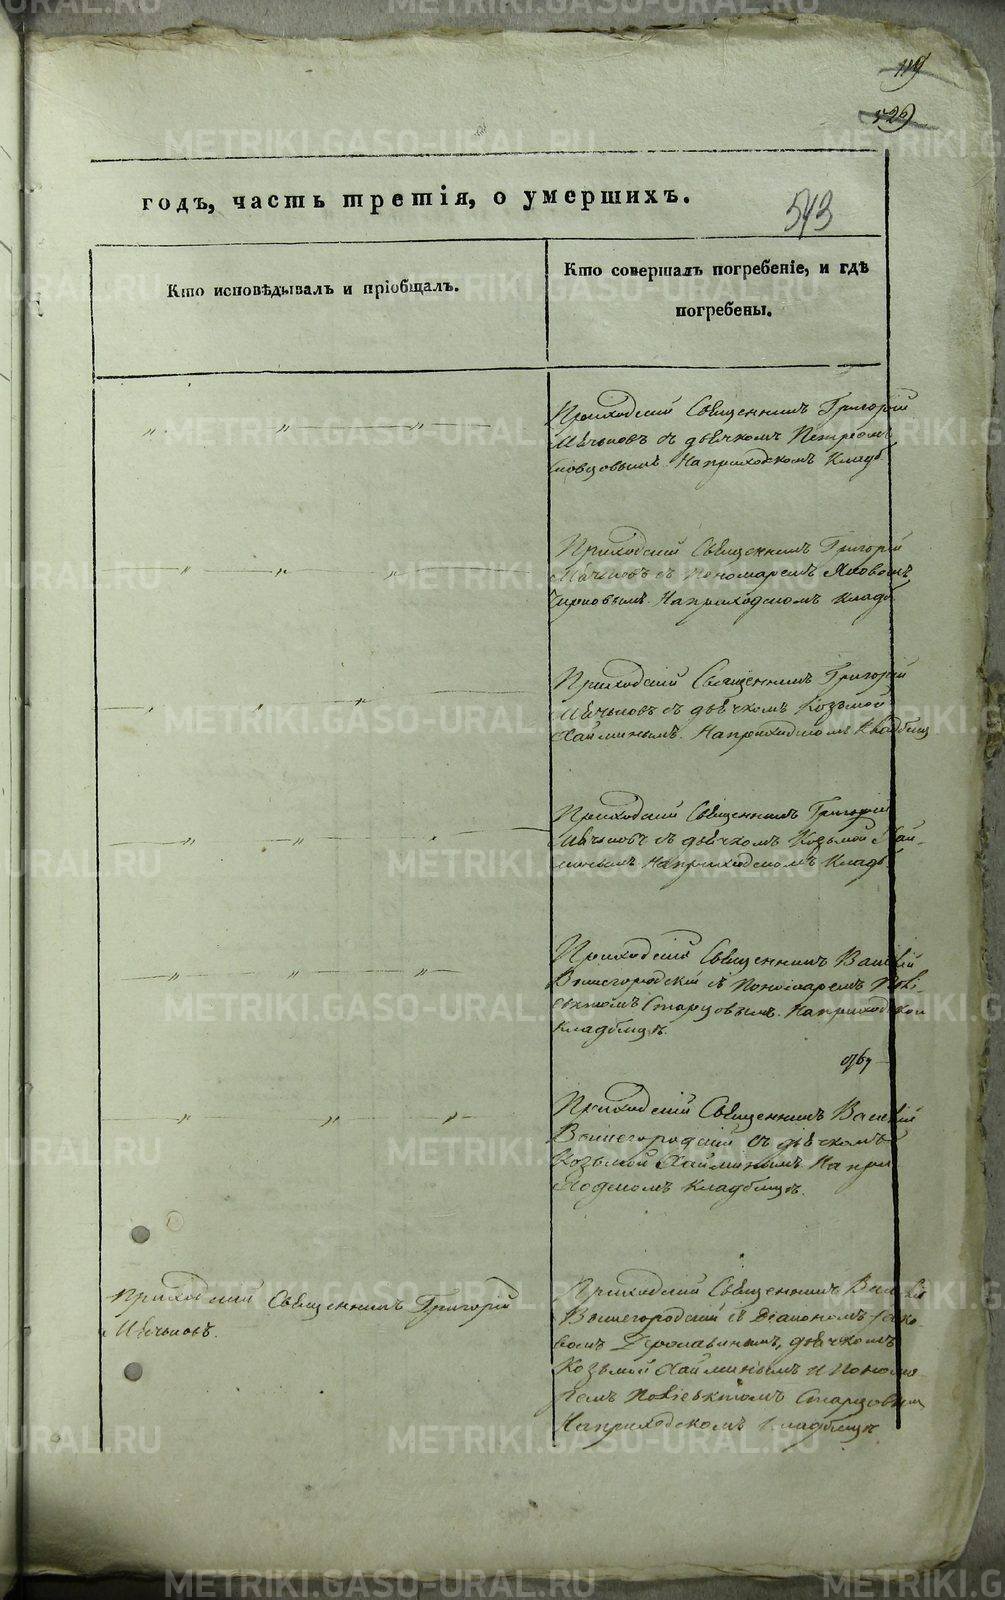 119
529
годъ, часть третія, о умершихъ.
543
Кто исповѣдывалъ и пріобщалъ.
Кто совершалъ погребеніе, и гдѣ
погребены.
Приходскій Священникъ Григорій
съ дьячкомъ Петромъ
На приходскомъ Кладб
Приходскій Священникъ Григорій
съ Пономаремъ Яковомъ
На приходскомъ Кладб
Приходскій Священникъ Григорій
съ дьячкомъ Козьмой
Хайминымъ. На приходскомъ Кладбищ
Приходскій Священникъ Григорій
съ дьячкомъ Козьмой Хай-
минымъ На приходскомъ Кладб.
Приходскій Священникъ Василій
Вышегородскій съ Пономаремъ
Старцовымъ. На приходском
кладбищѣ.
Приходскій Священникъ Василій
Вышегородскій съ дьячкомъ
Козьмой Хайминымъ На при
ходскомъ кладбищѣ.
Приходскій Священникъ Григорій
Приходскій Священникъ Василій
Вышегородскій съ Діакономъ Іако-
вомъ дьячкомъ
Козьмой Хайминымъ и Понома-
ремъ Старцовым
На приходскомъ Кладбищѣ
METRIKI.GASO-URAL.RU